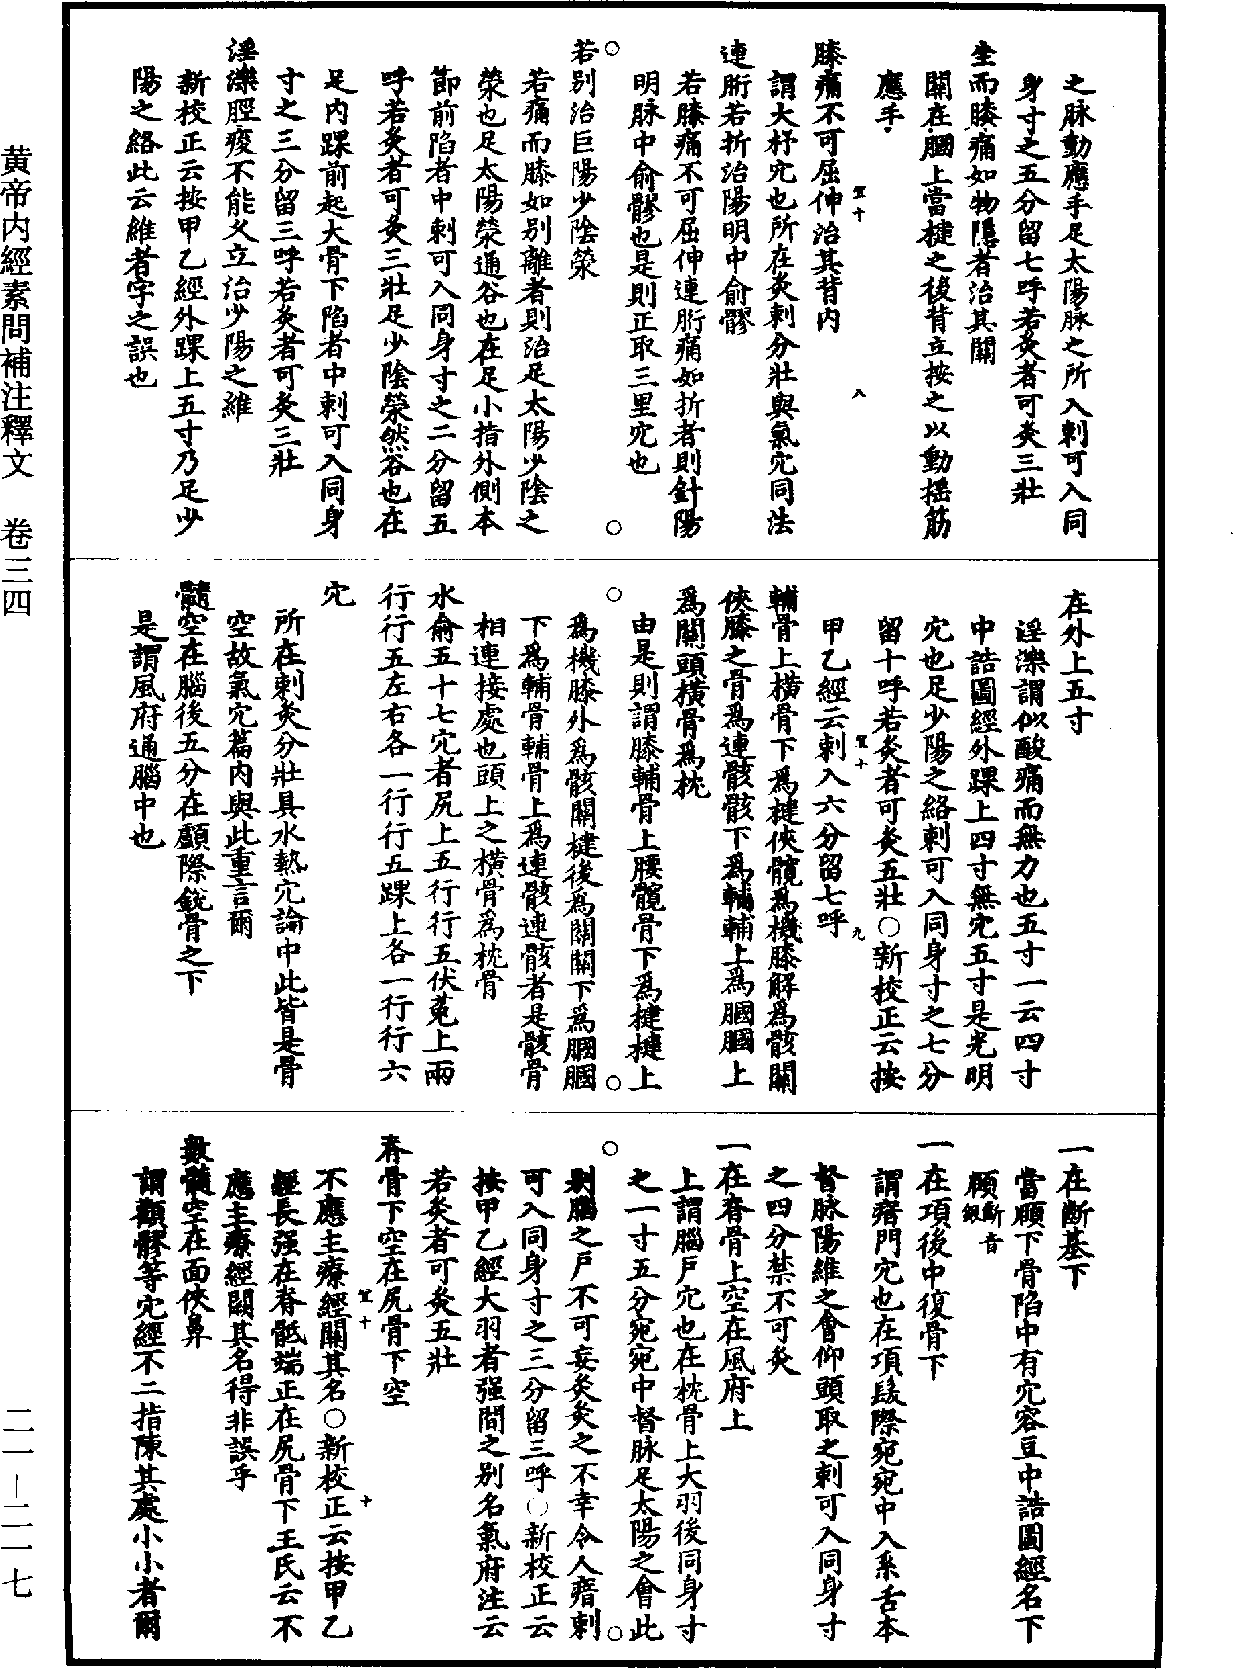 之脉動應手足太陽脉之所入刺可入同
身寸之五分留七呼若灸者可灸三壯
坐而膝痛如物隱者治其關
關在膕上當楗之後背立按之以動揺筋
應手
膝痛不可屈伸治其背内
謂大杼穴也所在灸刺分壯與氣穴同法
連䯒若折治陽明中俞髎
若膝痛不可屈伸連䯒痛如折者則針陽
明脉中俞髎也是則正取三里穴也
若别治巨陽少陰滎
若痛而膝如别離者則治足太陽少陰之
滎也足太陽滎通谷也在足小指外側本
節前陷者中刺可入同身寸之二分留五
呼若灸者可灸三壯足少陰滎然谷也在
足内踝前起大骨下陷者中刺可入同身
寸之三分留三呼若灸者可灸三壯
淫濼脛痠不能久立治少陽之維
新校正云按甲乙經外踝上五寸乃足少
陽之絡此云維者字之誤也
在外上五寸
淫濼謂似酸痛而無力也五寸一云四寸
中誥圖經外踝上四寸無穴五寸是光明
穴也足少陽之絡刺可入同身寸之七分
留十呼若灸者可灸五壯○新校正云按
甲乙經云刺入六分留七呼
輔骨上横骨下爲楗俠髖爲機膝解爲骸關
俠膝之骨爲連骸骸下爲輔輔上爲膕膕上
爲關頭横骨爲枕
由是則謂膝輔骨上腰髖骨下爲楗楗上
爲機膝外爲骸關楗後爲關關下爲膕膕
下爲輔骨輔骨上爲連骸連骸者是骸骨
相連接處也頭上之横骨爲枕骨
水俞五十七穴者尻上五行行五伏菟上兩
行行五左右各一行行五踝上各一行行六
穴
所在刺灸分壯具水熱穴論中此皆是骨
空故氣穴篇内與此重言爾
髓空在腦後五分在顱際銳骨之下
是謂風府通腦中也
一在斷基下
當頤下骨陷中有穴容豆中誥圖經名下
頤斷音銀
一在項後中復骨下
謂瘖門穴也在項髮際宛宛中入系舌本
督脉陽維之會仰頭取之刺可入同身寸
之四分禁不可灸
一在脊骨上空在風府上
上謂腦戶穴也在枕骨上大羽後同身寸
之一寸五分宛宛中督脉足太陽之會此
别腦之戶不可妄灸灸之不幸令人瘖刺
可入同身寸之三分留三呼○新校正云
按甲乙經大羽者强間之别名氣府注云
若灸者可灸五壯
脊骨下空在尻骨下空
不應主療經闕其名○新校正云按甲乙
經長强在脊骶端正在尻骨下王氏云不
應主療經闕其名得非誤乎
數髓空在面俠鼻
謂顴髎等穴經不二指陳其處小小者爾
黄帝内經素問補注釋文　卷三四
二一—二一七